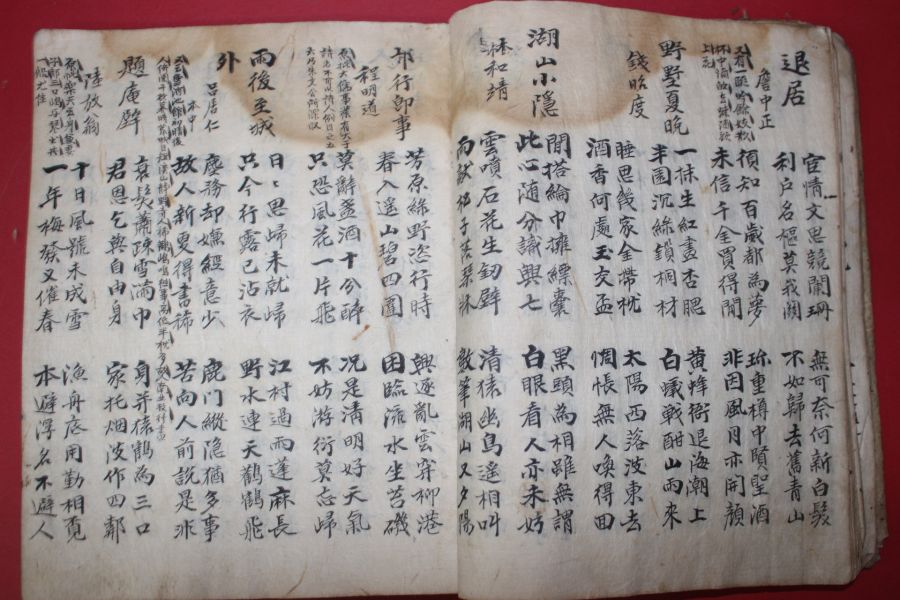 退居
詹中正
宦情文思競闌珊 無可奈何新白髮
利戶名樞莫我關 不如歸去舊青山
須知百歲都為夢 珍重樽中賢聖酒
未信千金買得閒 非因風月亦開顏
野墅夏晚
錢昭度
一抹生紅畫杏腮 黃蜂衙退海潮上
半園沉綠鎖桐材 白蟻戰酣山雨來
睡思幾家金帶枕 太陽西落波東去
酒香何處玉交盃 惆悵無人喚得回
湖山小隱
林和靖
閒搭綸巾擁縹囊 黑頭為相雖無謂
此心隨分識興亡 白眼看人亦未妨
雲噴石花生釰壁 清猿幽鳥遙相叫
雨敲松子落琴牀 數筆湖山又夕陽
郊行即事
程明道
芳原綠野恣行時 興逐亂雲穿柳港
春入遥山碧四圍 困臨流水坐苔磯
莫辭盞酒十分醉 況是清明好天氣
只恐風花一片飛 不妨游衍莫忘歸
雨後至城外
呂居仁
日日思歸未就歸 江村過雨蓬麻長
只今行露已沾衣 野水連天鸛鶴飛
塵務却嫌經意少 鹿門縱隱猶多事
故人新更得書稀 苦向人前說是非
題庵壁
陸放翁
衰髮蕭疎雪滿巾 身并猿鶴為三口
君恩乞與自由身 家托烟波作四鄰
十日風號未成雪 漁舟底用勤相覓
一年梅發又催春 本避浮名不避人